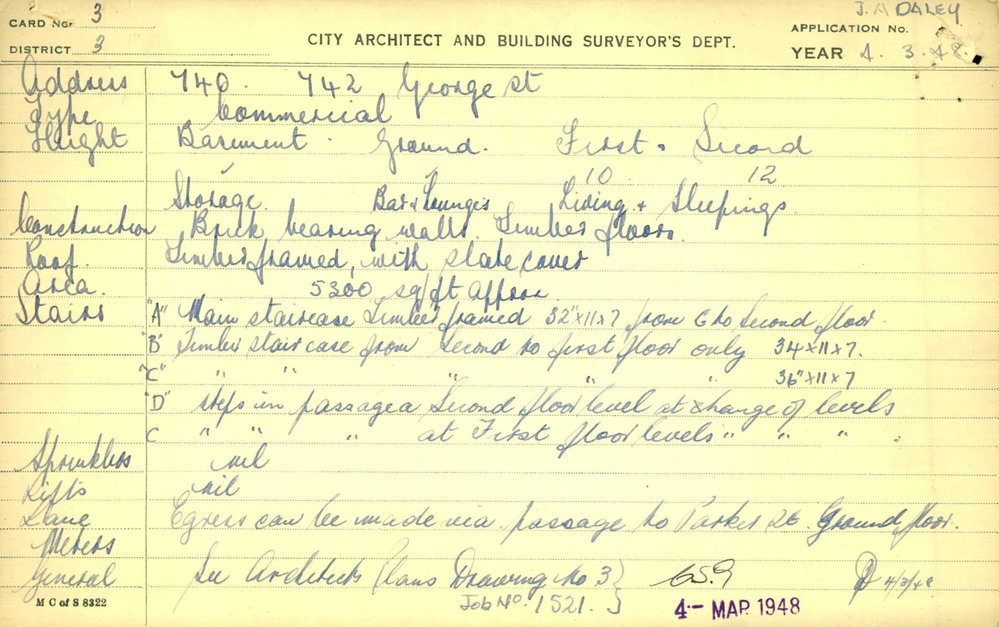 CARD No. 3
J. A DALEY
APPLICATION No.
DISTRICT 3
CITY ARCHITECT AND BUILDING SURVEYOR'S DEPT.
YEAR 4. 3. 48.
Address 740. 742 George St
Type Commercial
Height Basement. Ground. First. Second
10 12
Storage. Bar & Lounges Living & Sleepings
Construction Brick bearing walls. Timber floors.
Roof. Timber framed, with slate cover
Area. 5300 sq/ft approx.
Stairs "A" Main staircase Timber framed 32"x11x7 from G to Second floor.
"B" Timber staircase from Second to first floor only 34x11x7.
"C" " " " " " 36"x11x7
"D" steps in passage a Second floor level at change of levels
C " " " at First floor levels " " " .
Sprinklers nil
Lifts nil
Lane Egress can be made via passage to Parker St. Ground floor.
Meters
General See Architects Plans Drawing No 3}
4/3/48
M C of S 8322
Job No. 1521. }
4 - MAR 1948